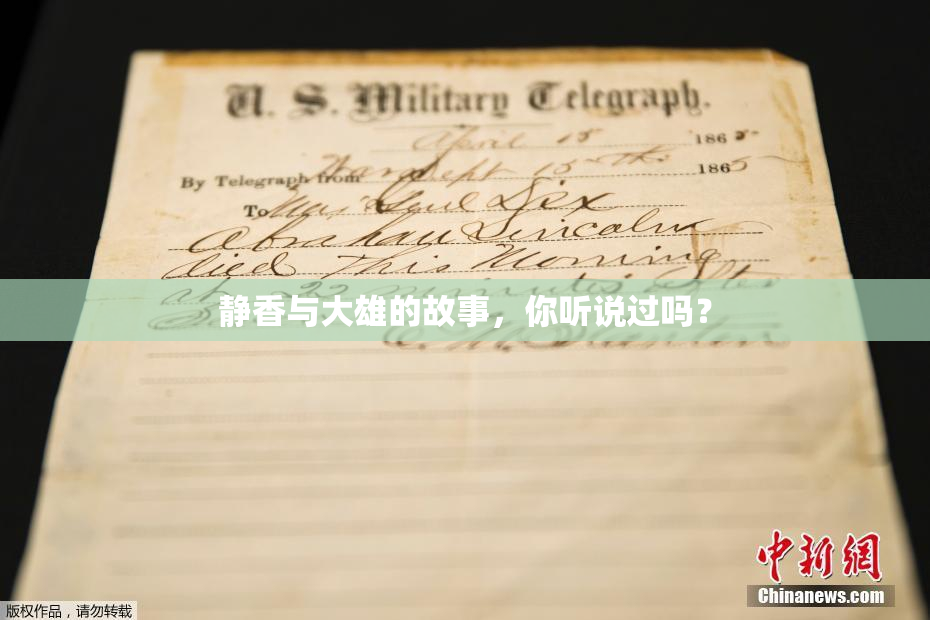 U. S. Military Telegraph.
April 15 1865
By Telegraph from War Dept 15th 1865
To Maj Genl Dix
Abraham Lincoln
died This Morning
at 22 minutes after
静香与大雄的故事，你听说过吗？
中新网
Chinanews.com
版权作品，请勿转载